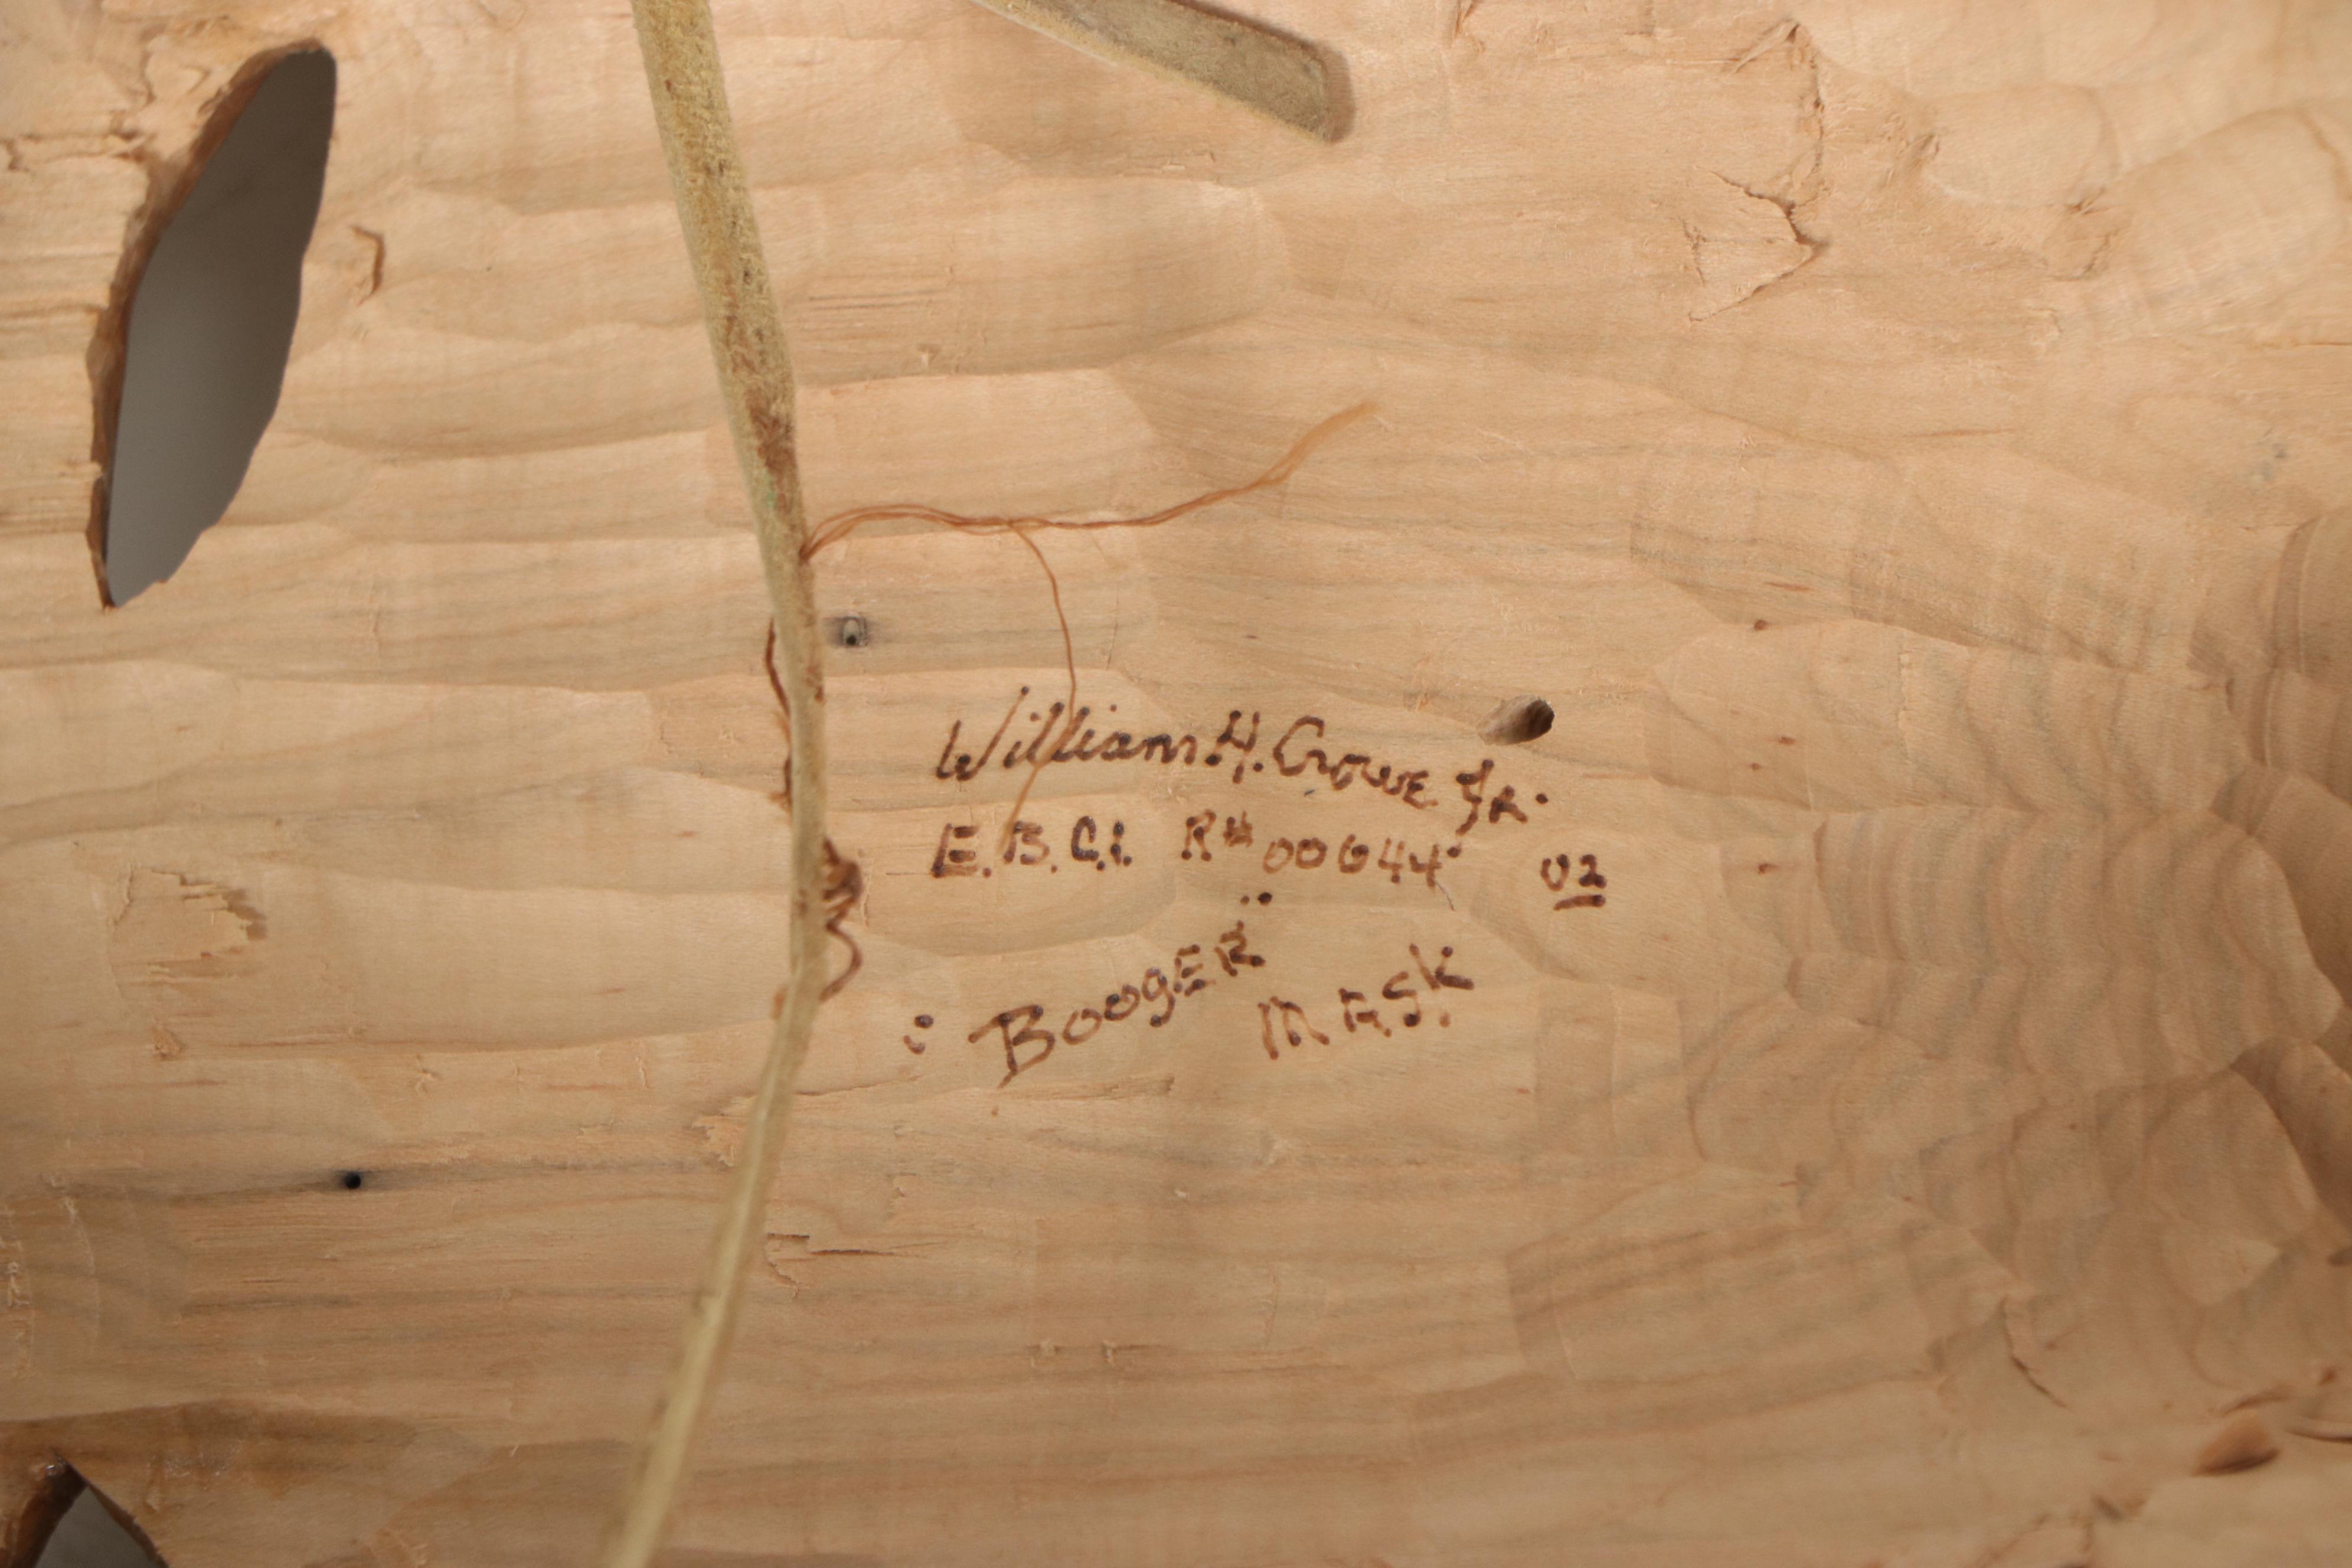 William H. Crowe Jr.
E.B.C.I. R# 00644 02
: BOOgER ..
MASK